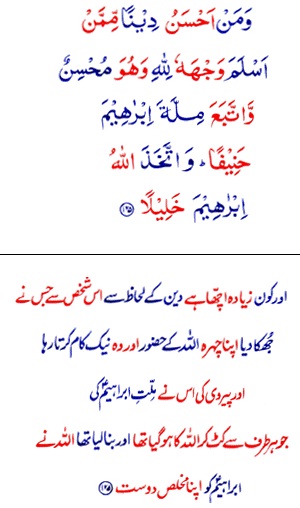 وَمَنْ اَحْسَنُ دِيْنًا مِّمَّنْ
اَسْلَمَ وَجْهَهٗ لِلّٰهِ وَهُوَ مُحْسِنٌ
وَّاتَّبَعَ مِلَّةَ اِبْرٰهِيْمَ
حَنِيْفًا ؕ وَاتَّخَذَ اللّٰهُ
اِبْرٰهِيْمَ خَلِيْلًا ۝۱۲۵
اور کون زیادہ اچھا ہے دین کے لحاظ سے اس شخص سے جس نے
جُھکا دیا اپنا چہرہ اللہ کے حضور اور وہ نیک کام کرتا رہا
اور پیروی کی اس نے مِلّتِ ابراہیمؑ کی
جو ہر طرف سے کٹ کر اللہ کا ہو گیا تھا اور بنا لیا تھا اللہ نے
ابراہیمؑ کو اپنا مخلص دوست ۝۱۲۵